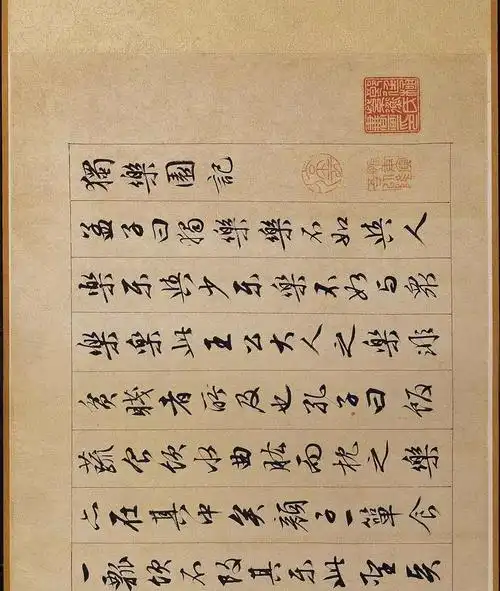 獨樂園記
孟子曰獨樂樂不如與人
樂樂與少樂樂不如與衆
樂樂此王公大人之樂非
貧賤者所及也孔子曰飯
蔬食飲水曲肱而枕之樂
亦在其中矣顏子一簞食
一瓢飲不改其樂此聖賢